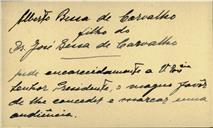 Alberto Bessa de Carvalho
filho do
Dr. José Bessa de Carvalho
pede encarecidamente a V. Exª
Senhor Presidente, o magno favor
de lhe conceder e marcar uma
audiência.